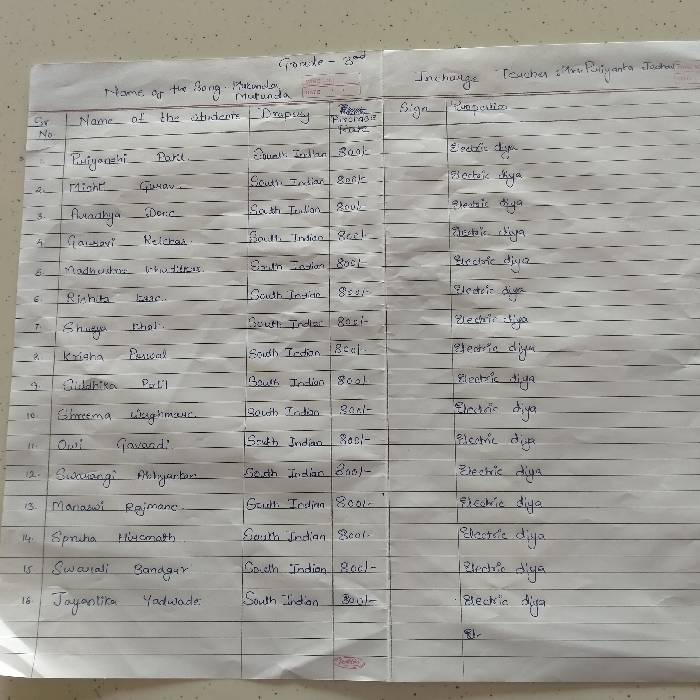 Grade - 3rd
Name of the Song: Mukunda Mukunda
Incharge Teacher : Mrs. Priyanka Jadhav
Sr No. Name of the students Drapery Purchase Rate Sign Properties
1. Priyanshi Patil South Indian 800/- Electric diya
2. Misht Gurav South Indian 800/- Electric diya
3. Aaradhya South Indian 800/- Electric diya
4. Gauravi Kelchar South Indian 800/- Electric diya
5. South Indian 800/- Electric diya
6. Rishita South Indian 800/- Electric diya
7. Shreya South Indian 800/- Electric diya
8. Krisha Porwal South Indian 800/- Electric diya
9. Siddhika Patil South Indian 800/- Electric diya
10. Shreema Waghmare South Indian 800/- Electric diya
11. Owi Gavandi South Indian 800/- Electric diya
12. Swarangi Abhyankar South Indian 800/- Electric diya
13. Manaswi Rajmane South Indian 800/- Electric diya
14. Spruha Hiremath South Indian 800/- Electric diya
15 Swarali Bandgar South Indian 800/- Electric diya
16. Jayantika Yadwade South Indian 800/- Electric diya
El-